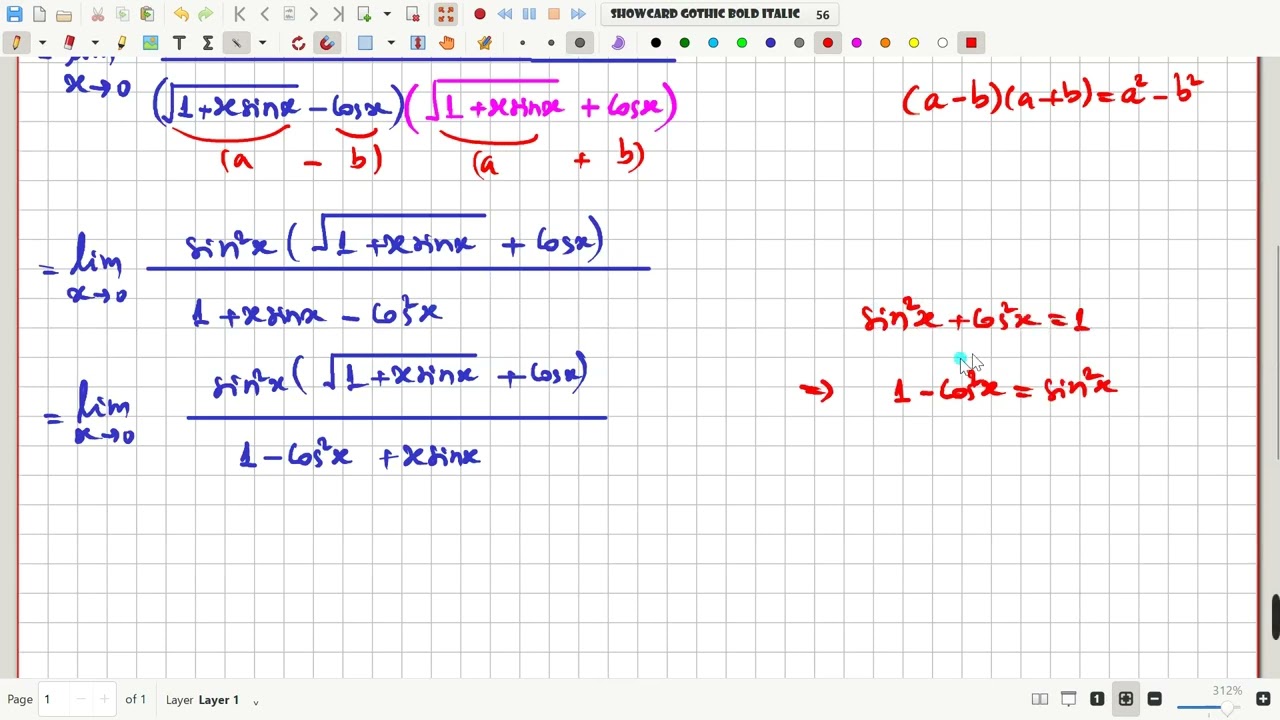 SHOWCARD GOTHIC BOLD ITALIC 56
x→0 (√1+xsinx − cosx)(√1+xsinx + cosx)
(a − b) (a + b)
(a−b)(a+b)=a²−b²
= lim x→0 sin²x(√1+xsinx + cosx)
1+xsinx − cos²x
sin²x+cos²x=1
= lim x→0 sin²x(√1+xsinx + cosx)
1−cos²x +xsinx
⇒ 1−cos²x = sin²x
Page 1 of 1 Layer Layer 1
1
312%